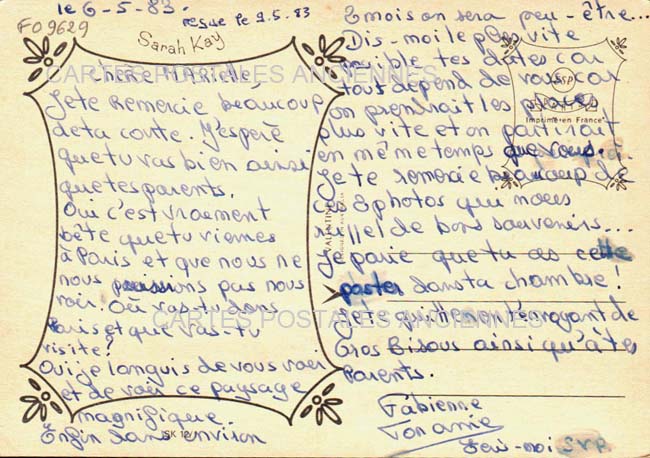 le 6-5-83.
resue le 9.5.83
FO9629
Sarah Kay
CARTES POSTALES ANCIENNES
chère Murielle,
Je te remercie beaucoup
de ta carte. J'espère
que tu vas bien ainsi
que tes parents.
Oui c'est vraement
bête que tu viennes
à Paris et que nous ne
nous puissions pas nous
voir. Où vas-tu dans
Paris et que vas-tu
visité?
CARTES POSTALES ANCIENNES
Oui je languis de vous voir
et de voir ce paysage
magnifique.
Enfin dans environ
SK 12
VALENTINE
2 mois on sera peu-être...
Dis-moi le plus vite
possible tes dates car
tout depend de vous car
on prendrait les
plus vite et on partirait
en même temps que vous.
Je te remercie beaucoup de
ces 2 photos qui nous
rappel de bons souvenirs...
Je parie que tu as cette
poster dans ta chambre!
Je te quitte en t'envoyant de
Gros Bisous ainsi qu'à tes
Parents.
Fabienne
Ton amie
Ecris-moi SVP
SSP
Imprimé en France